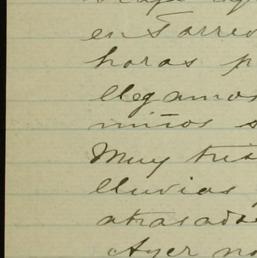 en Torreo
horas p
llegamos
niños s
Muy tris
lluvias
atrasada
Ayer no